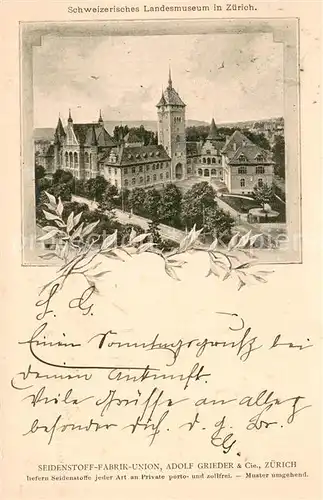 Schweizerisches Landesmuseum in Zürich.
L. G.
Einen Sonntagsgruß bei
deiner Ankunft.
Viele Grüße an alle
besonders dich. d. g. Br.
SEIDENSTOFF-FABRIK-UNION, ADOLF GRIEDER & Cie., ZÜRICH
liefern Seidenstoffe jeder Art an Private porto- und zollfrei. — Muster umgehend.